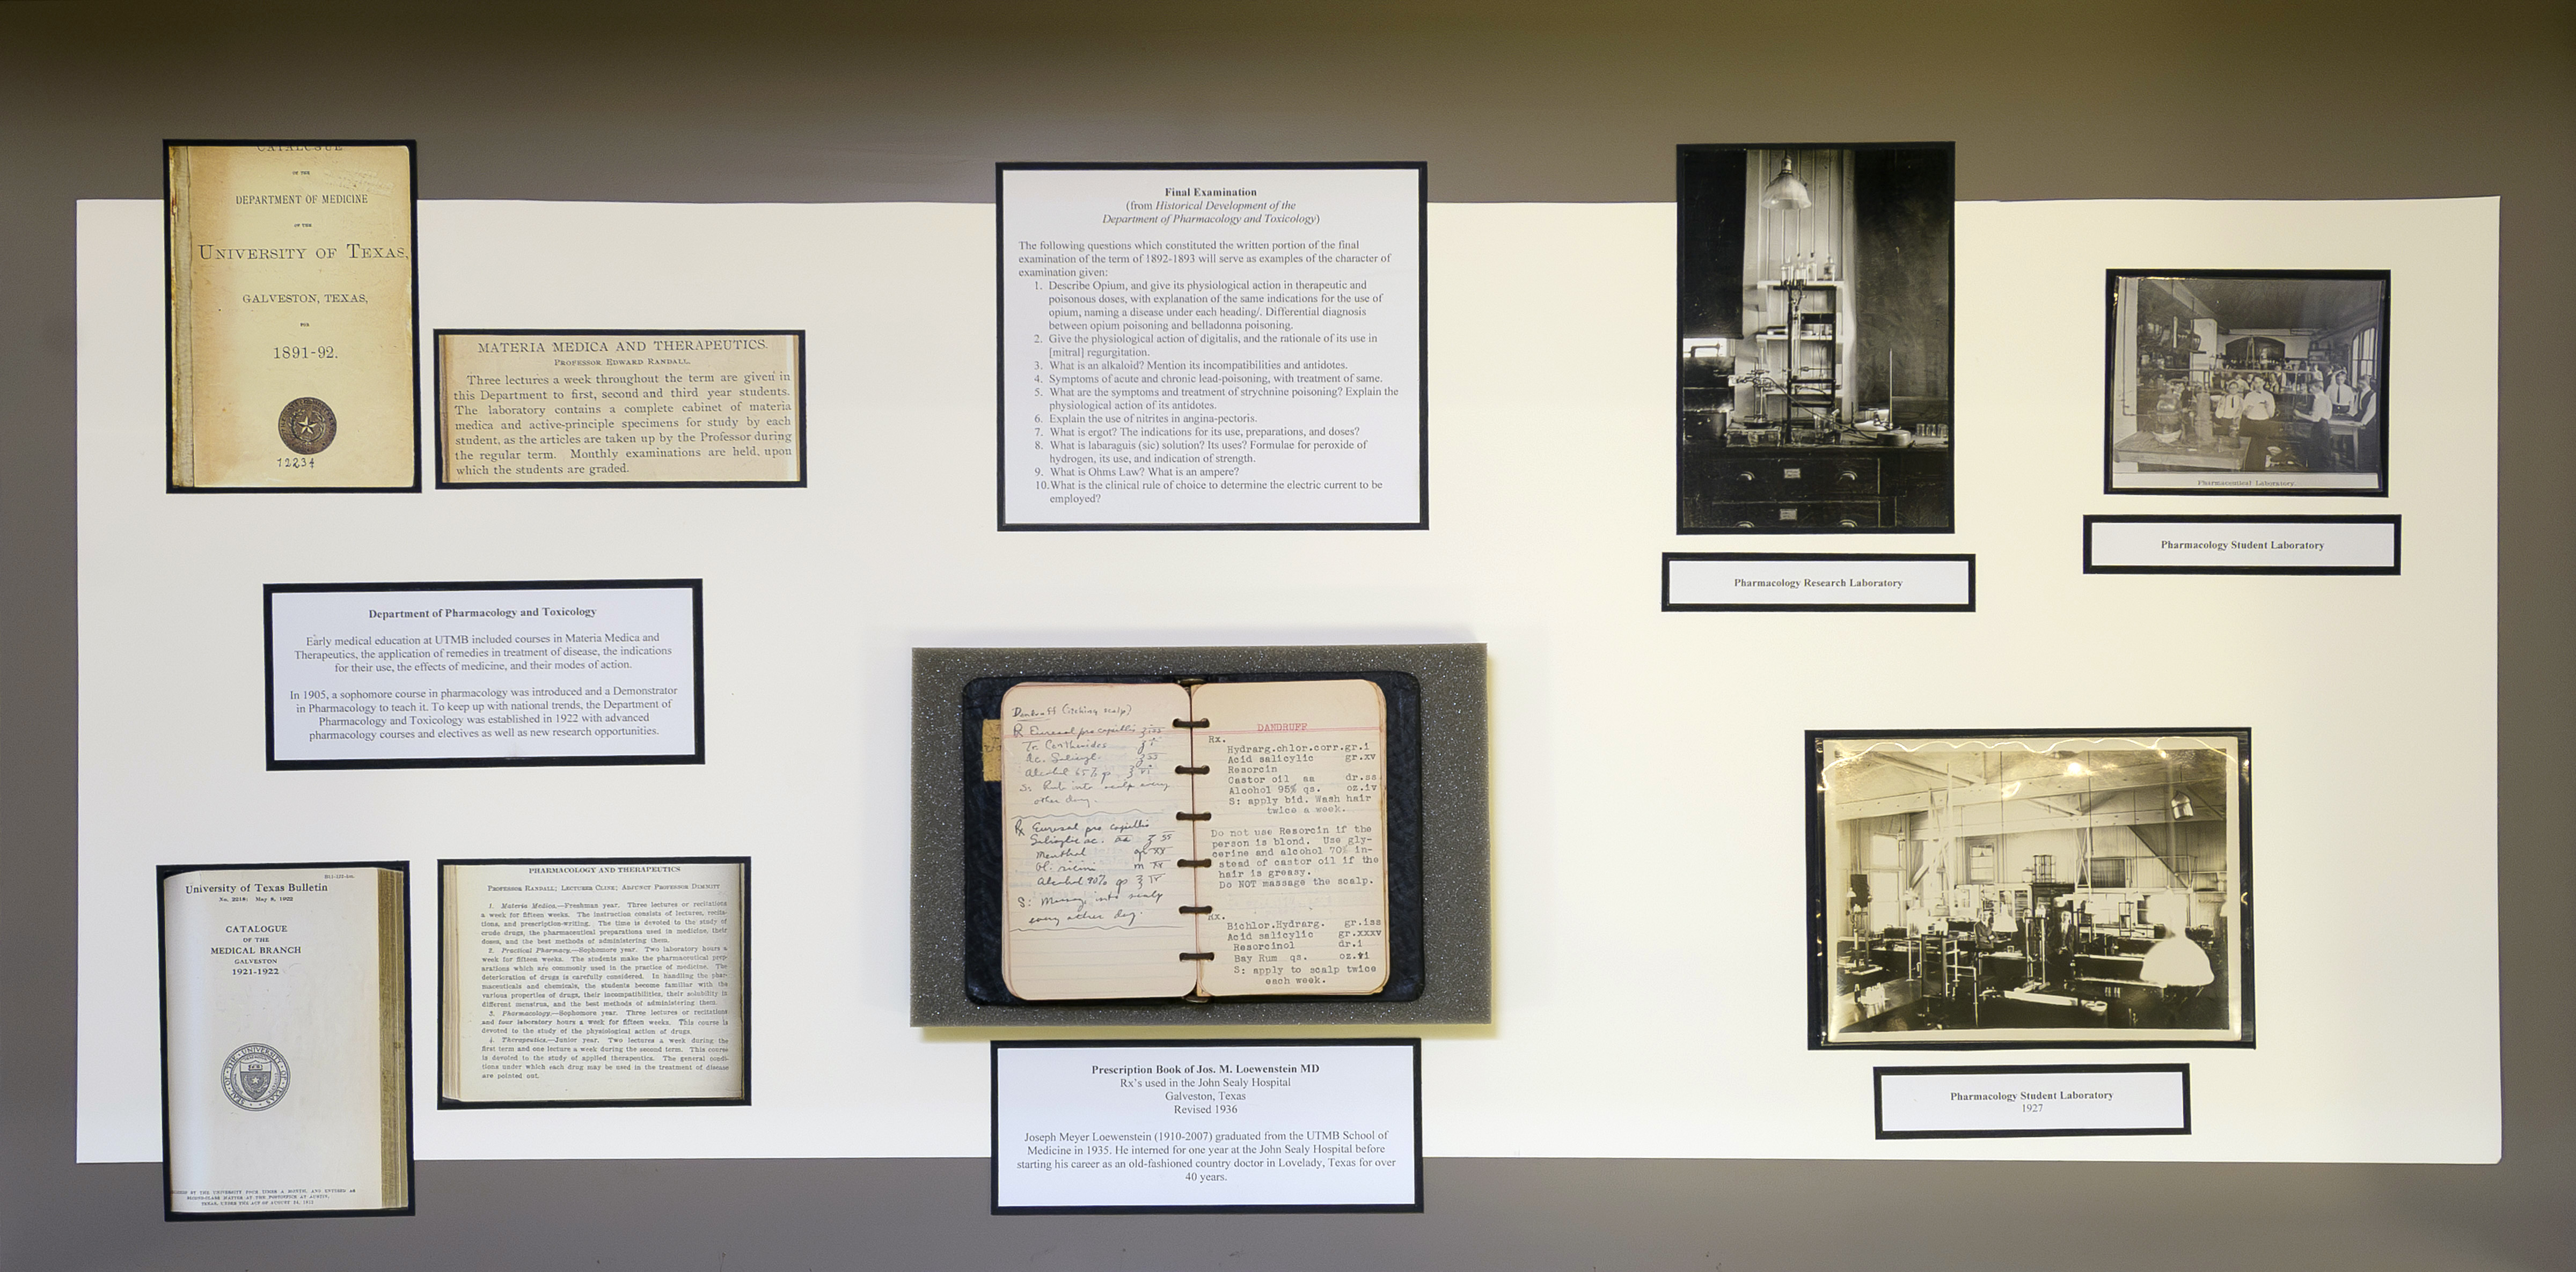 CATALOGUE
OF THE
DEPARTMENT OF MEDICINE
OF THE
UNIVERSITY OF TEXAS,
GALVESTON, TEXAS,
FOR
1891-92.
12234
MATERIA MEDICA AND THERAPEUTICS.
PROFESSOR EDWARD RANDALL.
Three lectures a week throughout the term are given in
this Department to first, second and third year students.
The laboratory contains a complete cabinet of materia
medica and active-principle specimens for study by each
student, as the articles are taken up by the Professor during
the regular term. Monthly examinations are held, upon
which the students are graded.
Department of Pharmacology and Toxicology
Early medical education at UTMB included courses in Materia Medica and
Therapeutics, the application of remedies in treatment of disease, the indications
for their use, the effects of medicine, and their modes of action.
In 1905, a sophomore course in pharmacology was introduced and a Demonstrator
in Pharmacology to teach it. To keep up with national trends, the Department of
Pharmacology and Toxicology was established in 1922 with advanced
pharmacology courses and electives as well as new research opportunities.
University of Texas Bulletin
No. 2218: May 8, 1922
CATALOGUE
OF THE
MEDICAL BRANCH
GALVESTON
1921-1922
BY THE UNIVERSITY FOUR TIMES A MONTH, AND ENTERED AS
SECOND-CLASS MATTER AT THE POSTOFFICE AT AUSTIN,
TEXAS, UNDER THE ACT OF AUGUST 24, 1912
PHARMACOLOGY AND THERAPEUTICS
PROFESSOR RANDALL; LECTURER CLINE; ADJUNCT PROFESSOR DIMMITT
1. Materia Medica.—Freshman year. Three lectures or recitations
a week for fifteen weeks. The instruction consists of lectures, recita-
tions, and prescription-writing. The time is devoted to the study of
crude drugs, the pharmaceutical preparations used in medicine, their
doses, and the best methods of administering them.
2. Practical Pharmacy.—Sophomore year. Two laboratory hours a
week for fifteen weeks. The students make the pharmaceutical prep-
arations which are commonly used in the practice of medicine. The
deterioration of drugs is carefully considered. In handling the phar-
maceuticals and chemicals, the students become familiar with the
various properties of drugs, their incompatibilities, their solubility in
different menstrua, and the best methods of administering them.
3. Pharmacology.—Sophomore year. Three lectures or recitations
and four laboratory hours a week for fifteen weeks. This course is
devoted to the study of the physiological action of drugs.
4. Therapeutics.—Junior year. Two lectures a week during the
first term and one lecture a week during the second term. This course
is devoted to the study of applied therapeutics. The general condi-
tions under which each drug may be used in the treatment of disease
are pointed out.
Final Examination
(from Historical Development of the
Department of Pharmacology and Toxicology)
The following questions which constituted the written portion of the final
examination of the term of 1892-1893 will serve as examples of the character of
examination given:
1. Describe Opium, and give its physiological action in therapeutic and
poisonous doses, with explanation of the same indications for the use of
opium, naming a disease under each heading/. Differential diagnosis
between opium poisoning and belladonna poisoning.
2. Give the physiological action of digitalis, and the rationale of its use in
[mitral] regurgitation.
3. What is an alkaloid? Mention its incompatibilities and antidotes.
4. Symptoms of acute and chronic lead-poisoning, with treatment of same.
5. What are the symptoms and treatment of strychnine poisoning? Explain the
physiological action of its antidotes.
6. Explain the use of nitrites in angina-pectoris.
7. What is ergot? The indications for its use, preparations, and doses?
8. What is labaraguis (sic) solution? Its uses? Formulae for peroxide of
hydrogen, its use, and indication of strength.
9. What is Ohms Law? What is an ampere?
10. What is the clinical rule of choice to determine the electric current to be
employed?
Dandruff (itching scalp)
Rx Euresol pro capillis
Tr. Cantharides
Ac. Salicyl.
Alcohol 65%
S: Rub into scalp every
other day.
Rx Euresol pro capillis
Salicylic ac. aa
Menthol gr xv
Ol. ricini m xv
Alcohol 90%
S: Massage into scalp
every other day.
DANDRUFF
Rx.
Hydrarg.chlor.corr.gr.i
Acid salicylic gr.xv
Resorcin
Castor oil aa dr.ss
Alcohol 95% qs. oz.iv
S: apply bid. Wash hair
twice a week.
Do not use Resorcin if the
person is blond. Use gly-
cerine and alcohol 70% in-
stead of castor oil if the
hair is greasy.
Do NOT massage the scalp.
Rx.
Bichlor.Hydrarg. gr.iss
Acid salicylic gr.xxxv
Resorcinol dr.i
Bay Rum qs. oz.vi
S: apply to scalp twice
each week.
Prescription Book of Jos. M. Loewenstein MD
Rx's used in the John Sealy Hospital
Galveston, Texas
Revised 1936
Joseph Meyer Loewenstein (1910-2007) graduated from the UTMB School of
Medicine in 1935. He interned for one year at the John Sealy Hospital before
starting his career as an old-fashioned country doctor in Lovelady, Texas for over
40 years.
Pharmacology Research Laboratory
Pharmaceutical Laboratory.
Pharmacology Student Laboratory
Pharmacology Student Laboratory
1927